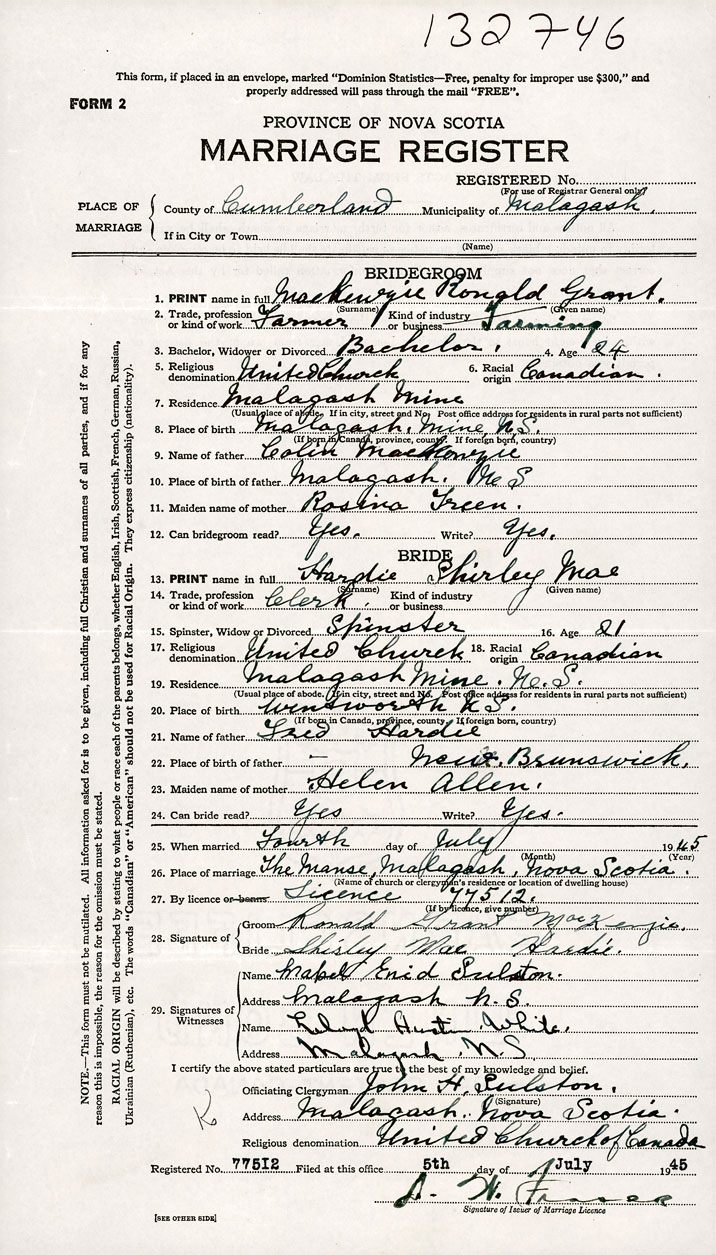 132746
This form, if placed in an envelope, marked “Dominion Statistics—Free, penalty for improper use $300,” and
properly addressed will pass through the mail “FREE”.
FORM 2
PROVINCE OF NOVA SCOTIA
MARRIAGE REGISTER
REGISTERED No.
(For use of Registrar General only)
PLACE OF MARRIAGE
County of Cumberland Municipality of Malagash.
If in City or Town
(Name)
BRIDEGROOM
1. PRINT name in full MacKenzie Ronald Grant.
(Surname) (Given name)
2. Trade, profession or kind of work Farmer Kind of industry or business Farming
3. Bachelor, Widower or Divorced Bachelor. 4. Age 24
5. Religious denomination United Church 6. Racial origin Canadian.
7. Residence Malagash Mine
(Usual place of abode. If in city, street and No. Post office address for residents in rural parts not sufficient)
8. Place of birth Malagash. Mine, N.S.
(If born in Canada, province, county. If foreign born, country)
9. Name of father Colin MacKenzie
10. Place of birth of father Malagash. N.S
11. Maiden name of mother Rosina Treen.
12. Can bridegroom read? Yes. Write? Yes.
BRIDE
13. PRINT name in full Hardie Shirley Mae
(Surname) (Given name)
14. Trade, profession or kind of work Clerk. Kind of industry or business
15. Spinster, Widow or Divorced Spinster 16. Age 21
17. Religious denomination United Church 18. Racial origin Canadian
19. Residence Malagash Mine. N.S.
(Usual place of abode. If in city, street and No. Post office address for residents in rural parts not sufficient)
20. Place of birth N.S.
(If born in Canada, province, county. If foreign born, country)
21. Name of father Fred Hardie
22. Place of birth of father — New Brunswick.
23. Maiden name of mother Helen Allen.
24. Can bride read? Yes Write? Yes.
25. When married Fourth day of July 1945
(Month) (Year)
26. Place of marriage The Manse, Malagash, Nova Scotia.
(Name of church or clergyman's residence or location of dwelling house)
27. By licence or banns Licence 77512.
(If by licence, give number)
28. Signature of
Groom Ronald Grant MacKenzie.
Bride Shirley Mae Hardie.
29. Signatures of Witnesses
Name Mabel Enid Sulston.
Address Malagash N.S.
Name Lloyd Austin White.
Address Malagash, N.S
I certify the above stated particulars are true to the best of my knowledge and belief.
Officiating Clergyman John H. Sulston.
(Signature)
Address Malagash. Nova Scotia.
Religious denomination United Church of Canada
Registered No. 77512 Filed at this office 5th day of July 1945
Signature of Issuer of Marriage Licence
[SEE OTHER SIDE]
NOTE.—This form must not be mutilated. All information asked for is to be given, including full Christian and surnames of all parties, and if for any
reason this is impossible, the reason for the omission must be stated.
RACIAL ORIGIN will be described by stating to what people or race each of the parents belongs, whether English, Irish, Scottish, French, German, Russian,
Ukrainian (Ruthenian), etc. The words “Canadian” or “American” should not be used for Racial Origin. They express citizenship (nationality).